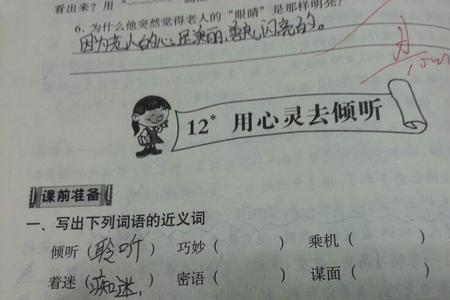 看出来？用“
6. 为什么他突然觉得老人的“眼睛”是那样明亮？
因为老人的心是美丽,善良,闪亮的。
12* 用心灵去倾听
课前准备
一、写出下列词语的近义词
倾听（聆听） 巧妙（ ） 乘机（ ）
着迷（痴迷） 密语（ ） 谋面（ ）